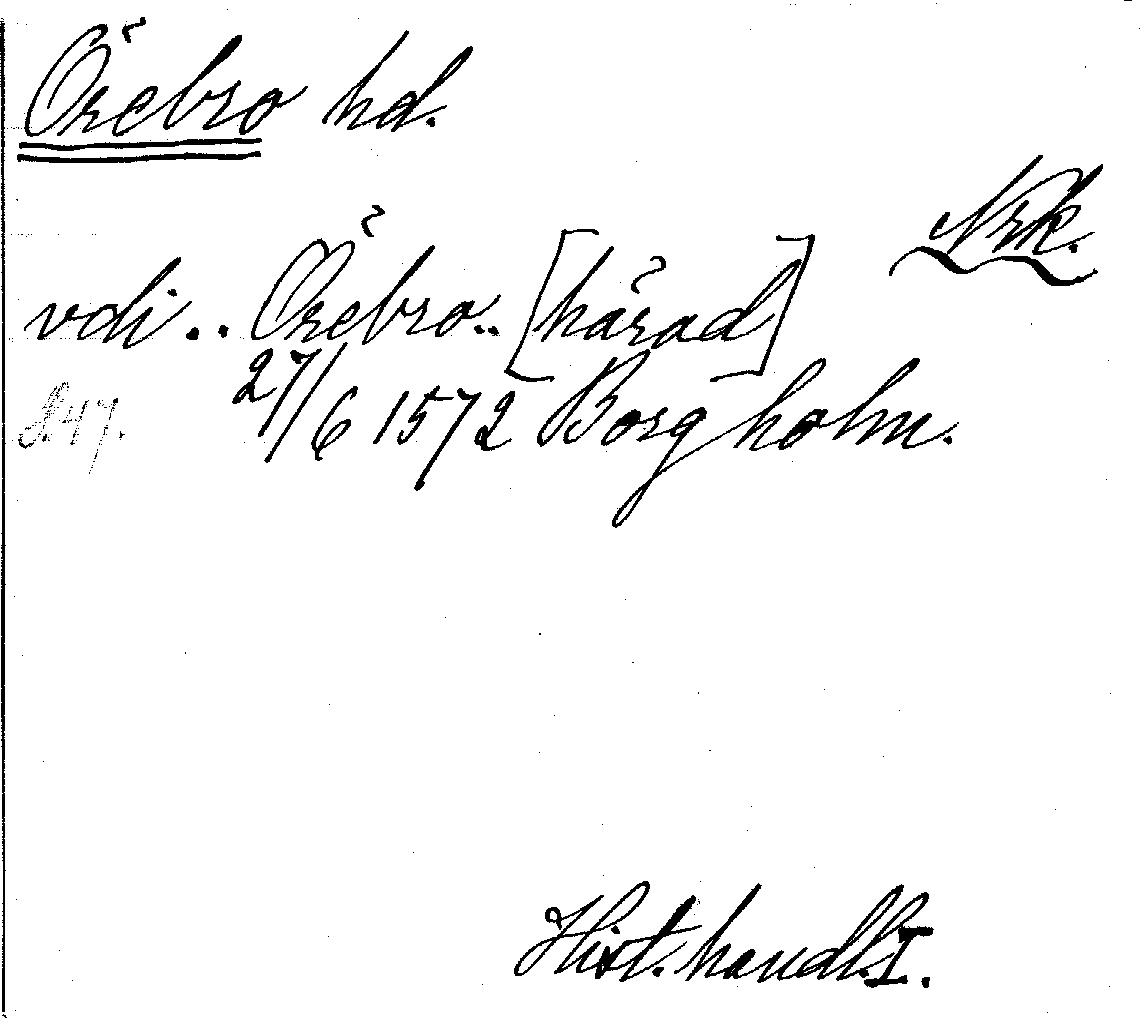 Örebro hd.
Nrk.
vdi .. Örebro .. [härad]
27/6 1572 Borgholm.
S. 47.
Hist. handl. I.